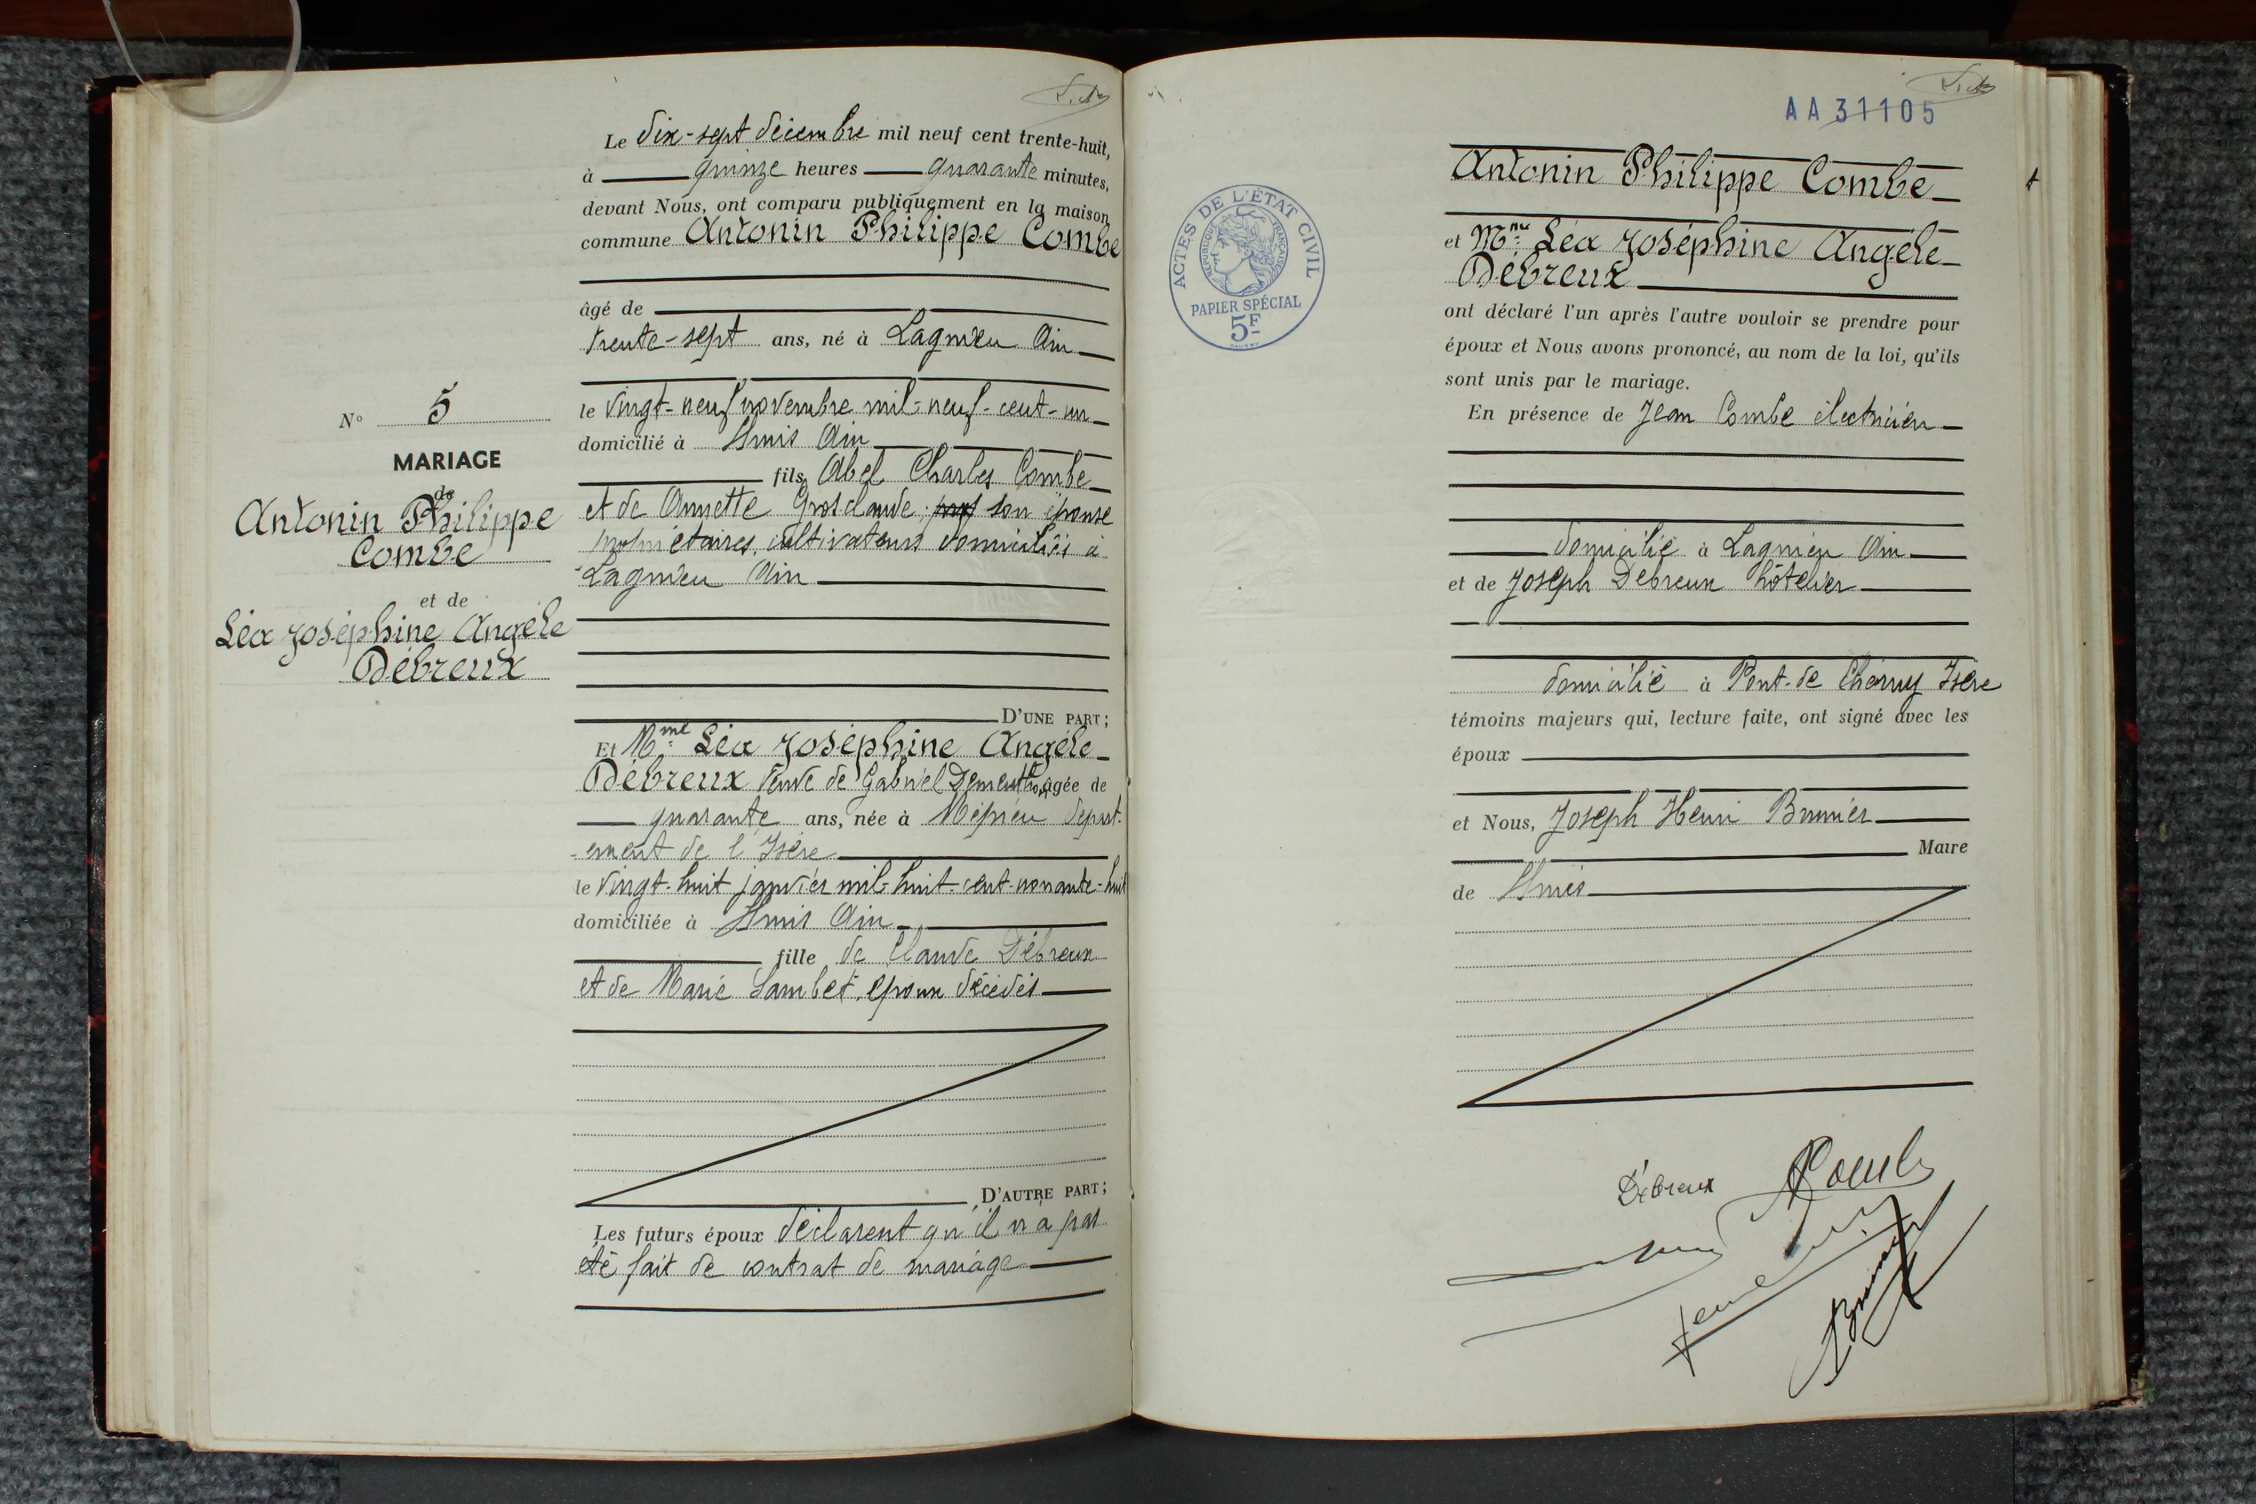 Le dix-sept décembre mil neuf cent trente-huit,
à quinze heures quarante minutes,
devant Nous, ont comparu publiquement en la maison
commune Antonin Philippe Combe
âgé de
trente-sept ans, né à Lagnieu Ain
le vingt-neuf novembre mil-neuf-cent-un
domicilié à Lhuis Ain
fils Abel Charles Combe
et de Annette Grosclaude, son épouse
propriétaires cultivateurs domiciliés à
Lagnieu Ain
D'UNE PART;
Et Mme Léa Joséphine Angèle
Débreux veuve de Gabriel âgée de
quarante ans, née à Mépieu départ-
-ement de l'Isère
le vingt-huit janvier mil-huit-cent-nonante-huit
domiciliée à Lhuis Ain
fille de Claude Débreux
et de Marie Lambet, époux décédés
D'AUTRE PART;
Les futurs époux déclarent qu'il n'a pas
été fait de contrat de mariage
No 5
MARIAGE
de
Antonin Philippe
Combe
et de
Léa Joséphine Angèle
Débreux
AA 31105
ACTES DE L'ÉTAT CIVIL
RÉPUBLIQUE FRANÇAISE
PAPIER SPÉCIAL
5F
Antonin Philippe Combe
et Mme Léa Joséphine Angèle
Débreux
ont déclaré l'un après l'autre vouloir se prendre pour
époux et Nous avons prononcé, au nom de la loi, qu'ils
sont unis par le mariage.
En présence de Jean Combe électricien
domicilié à Lagnieu Ain
et de Joseph Debreux hôtelier
domicilié à Pont-de Chéruy Isère
témoins majeurs qui, lecture faite, ont signé avec les
époux
et Nous, Joseph Henri Brunier
Maire
de Lhuis
Débreux